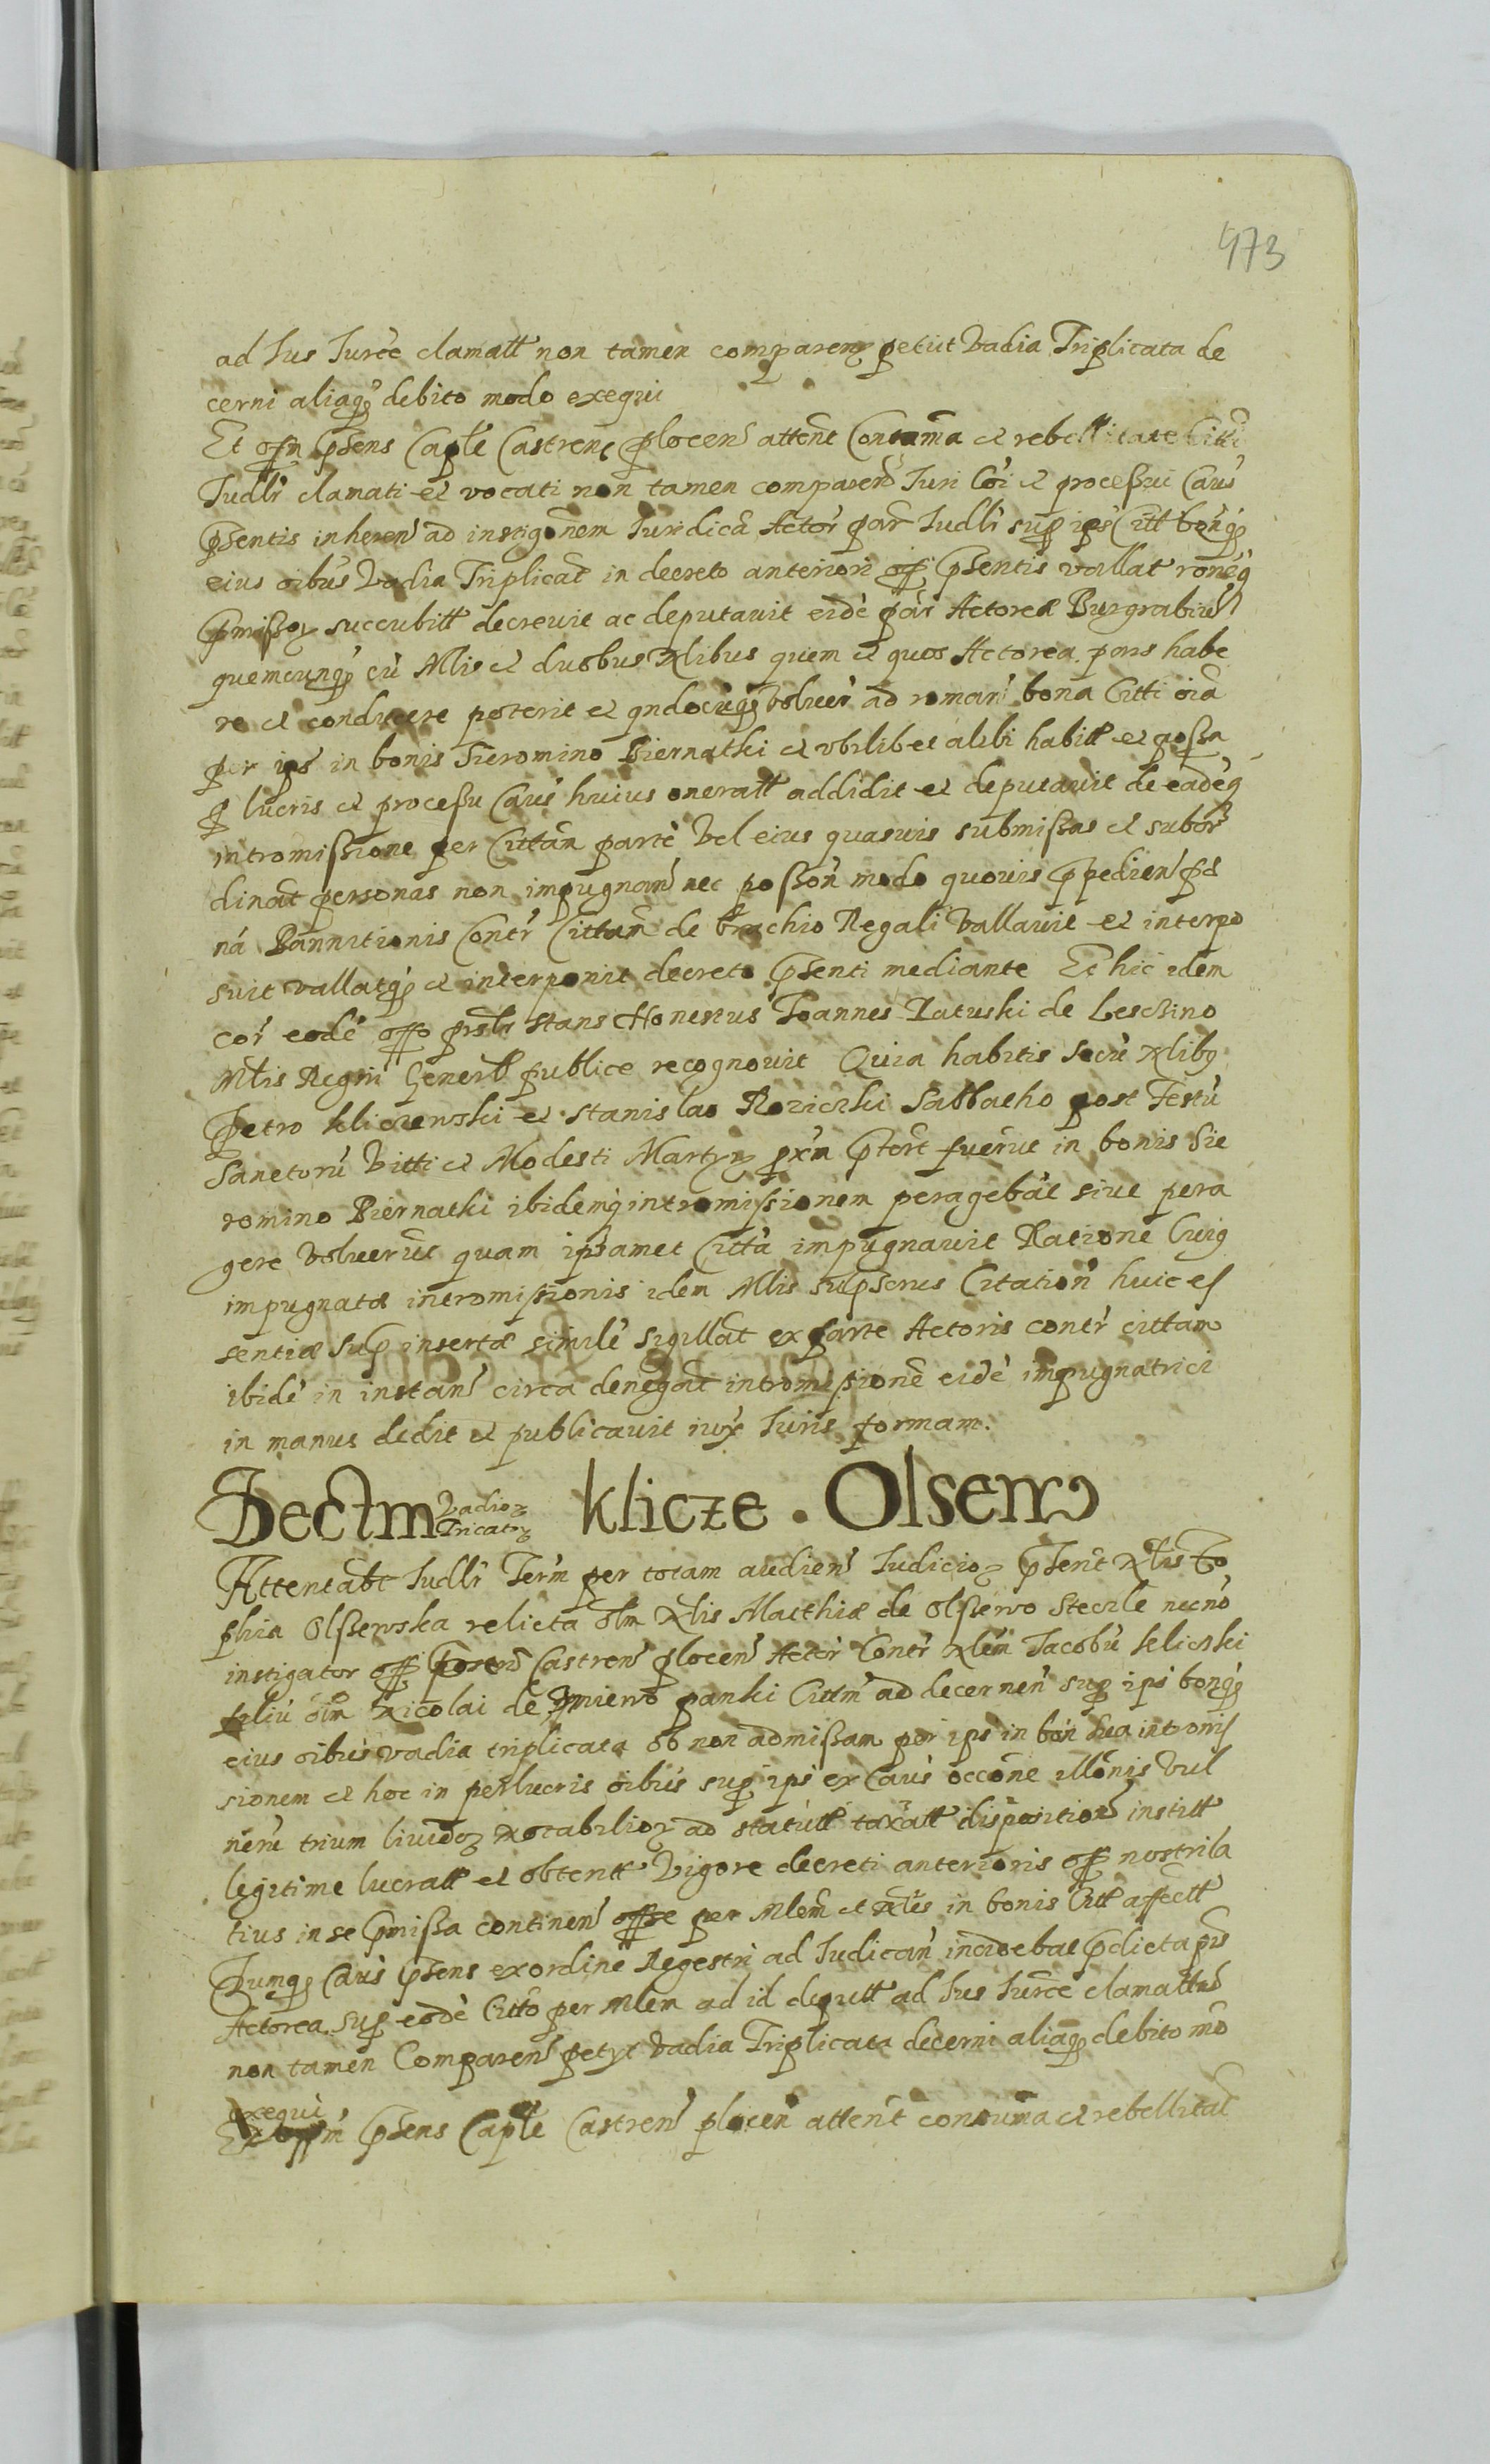 473
ad Ius Iurce clamatt non tamen comparen petiit Vadia Triplicata de
cerni aliaq debito modo exequi
Et offm Psens Caple Castren plocen attent Contuma et rebellitate Citti
Iudlr clamati et vocati non tamen comparen Iuri Coi et processui Caus
Psentis inheren ad instigonem Iuridica Actor par Iudlr sup ips Citt bonq
eius oibus Vadia Triplicat in decreto anteriori off Psentis vallat roneq
Pmissor succubitt decrevit ac deputavit eide par Actoreæ Burgrabium
quemcunq cu Mlis et duobus Nlibus quem et quos Actorea pars habe
re et conducere poterit et qndocuq voluer ad roman bona Citti oia
per ips in bonis Sieromino Biernatki et vbilibet alibi habitt et possa
q lucris et processu Caus huius oneratt addidit et deputavit de eadeq
intromissione per Cittam parte Vel eius quasvis submissas et subor
dinat personas non impugnan nec posson modo quovis Ppedien pæ
na Bannitionis Contr Cittam de brachio Regali Vallavit et interpo
suit vallatq et interponit decreto Psenti mediante Et hic idem
cor eode offo prslr stans Honestus Joannes Ratuski de Lesczino
Mlis Regni Generl publice recognovit Quia habitis secu Nlibq
Petro Kliczewski et Stanislao Roziczki Sabbatho post Festu
Sanctoru Vitti et Modesti Martyr pxm Ptert fuerut in bonis Sie
romino Biernatki ibidemq intromissionem peragebat sive pera
gere Voluerut quam ipsamet Citta impugnavit Ratione Cuiq
impugnatæ intromissionis idem Mlis supscrus Citation huic es
sentiæ Sup insertæ simile sigillat ex parte Actoris contr cittam
ibide in instan circa denegat intromissione eide impugnatrici
in manus dedit et publicavit iux Iuris formam.
Dectm Vadior Tricator Klicze . Olsewo
Attentabt Iudlr Term per totam audien Iudicior Psent Nlis Zo
phia Olszewska relicta olm Nlis Matthiæ de Olszewo Steczle necno
instigator off Psen Castren plocen Actor Contr Nlem Jacobu Kliczki
filiu olm Nicolai de panki Cittm ad decernen sup ips bonq
eius oibus vadia triplicata ob non admissam per ips in bon sua intromis
sionem et hoc in lucris oibus sup ips ex Caus occone illonis Vul
neru trium lividor Notabilior ad statutt taxatt disposition institt
legitime lucratt et obtentt Vigore decreti anterioris off nostri la
tius in se Pmissa continen offse per Mlem et Nles in bonis Citt affectt
Dumq Caus Psens ex ordine Regestri ad Iudican incidebat Pdicta prs
Actorea Sup eode Citto per Mlem ad id deputt ad Ius Iurce clamatt
non tamen Comparen petyt Vadia Triplicata decerni aliaq debito mo
exequi
Et offm Psens Caple Castren plocen attent contuma et rebellitat